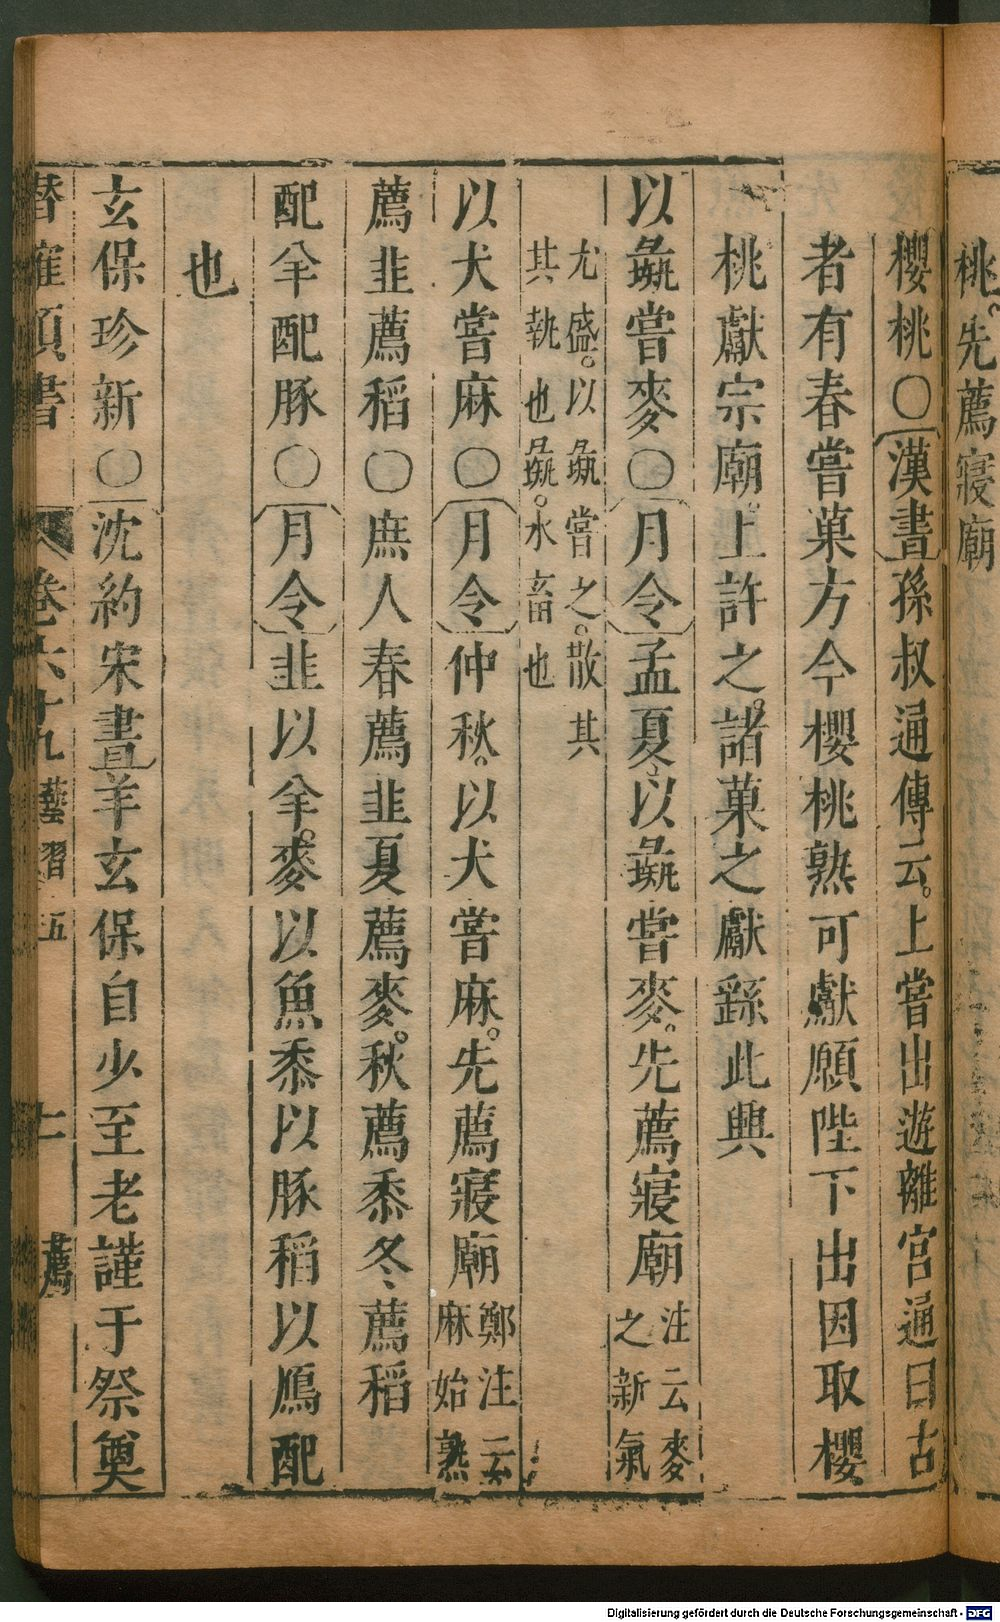 桃。先薦寢廟
櫻桃〇漢書孫叔通傳云。上嘗出遊離宮通曰古
者有春嘗菓方今櫻桃熟可獻願陛下出因取櫻
桃獻宗廟。上許之。諸菓之獻繇此興
以彘嘗麥〇月令孟夏以彘嘗麥。先薦寢廟注云麥之新氣
尤盛。以彘嘗之。散其
其執也彘。水畜也
以犬嘗麻〇月令仲秋。以犬嘗麻。先薦寢廟鄭注云麻始熟
薦韭薦稻〇庶人春薦韭夏薦麥。秋薦黍冬薦稻
配牟配豚〇月令韭以牟。麥以魚黍以豚稻以鴈配
也
玄保珍新〇沈約宋書羊玄保自少至老謹于祭奠
潛確類書 卷六十九 藝習五 十一 薦
Digitalisierung gefördert durch die Deutsche Forschungsgemeinschaft - DFG